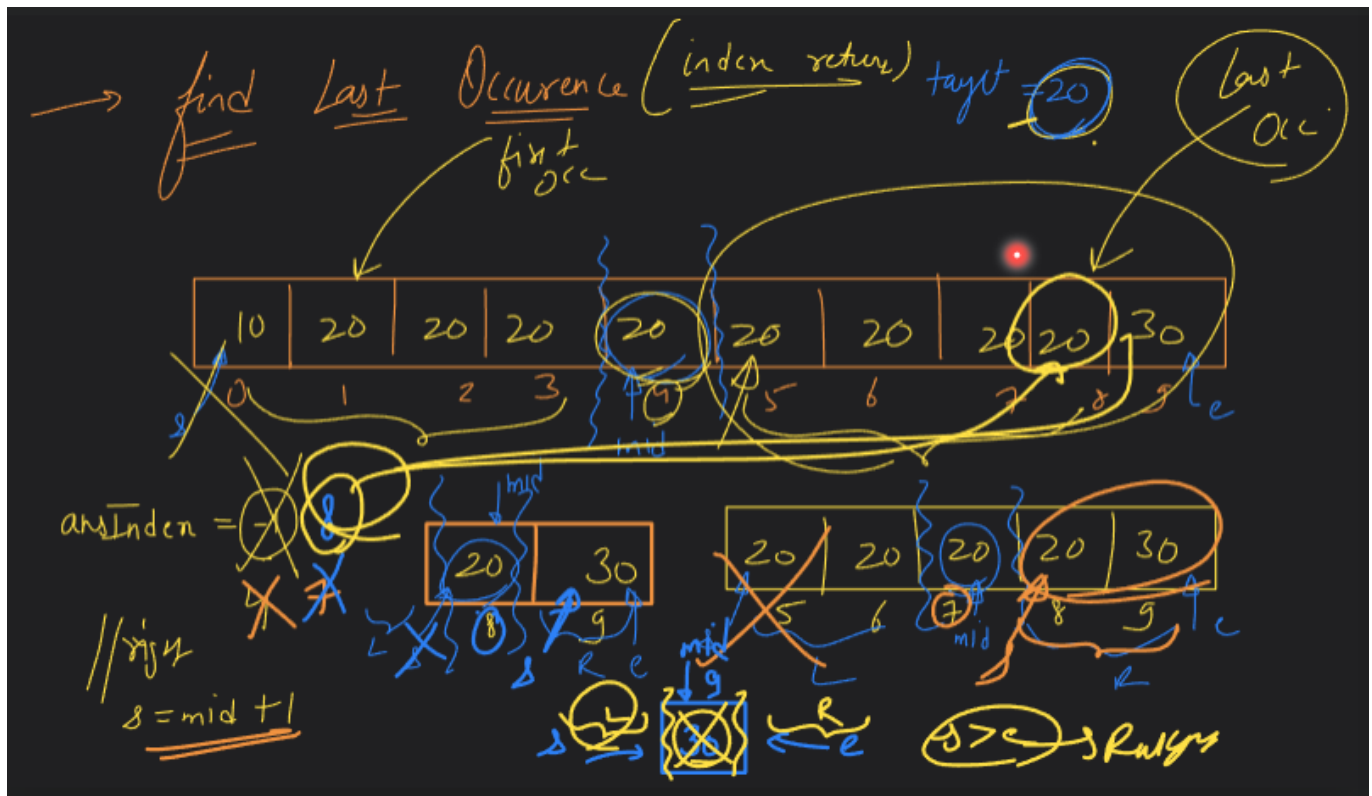 → find Last Occurence (index return) target = 20
first
occ
Last
Occ
10 20 20 20 20 20 20 20 20 30
0 1 2 3 4 5 6 7 8 9
s mid e
ansIndex = -1 8
4 7
mid
20 30
8 9
L s s R e
20 20 20 20 30
5 6 7 8 9
mid e
L s R
//right
s = mid + 1
mid
9
L R
s 30 e
s>e →